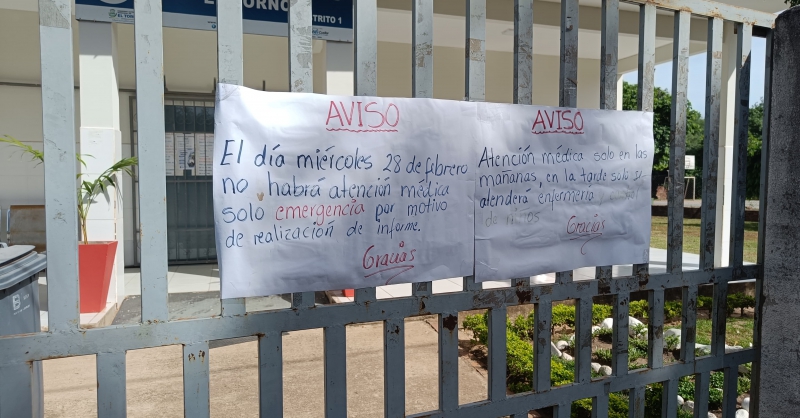 EL TORNO
DISTRITO 1
AVISO
El día miércoles 28 de febrero
no habrá atención médica
solo emergencia por motivo
de realización de informe.
Gracias
AVISO
Atención médica solo en las
mañanas, en la tarde solo se
atenderá enfermería
de niños
Gracias